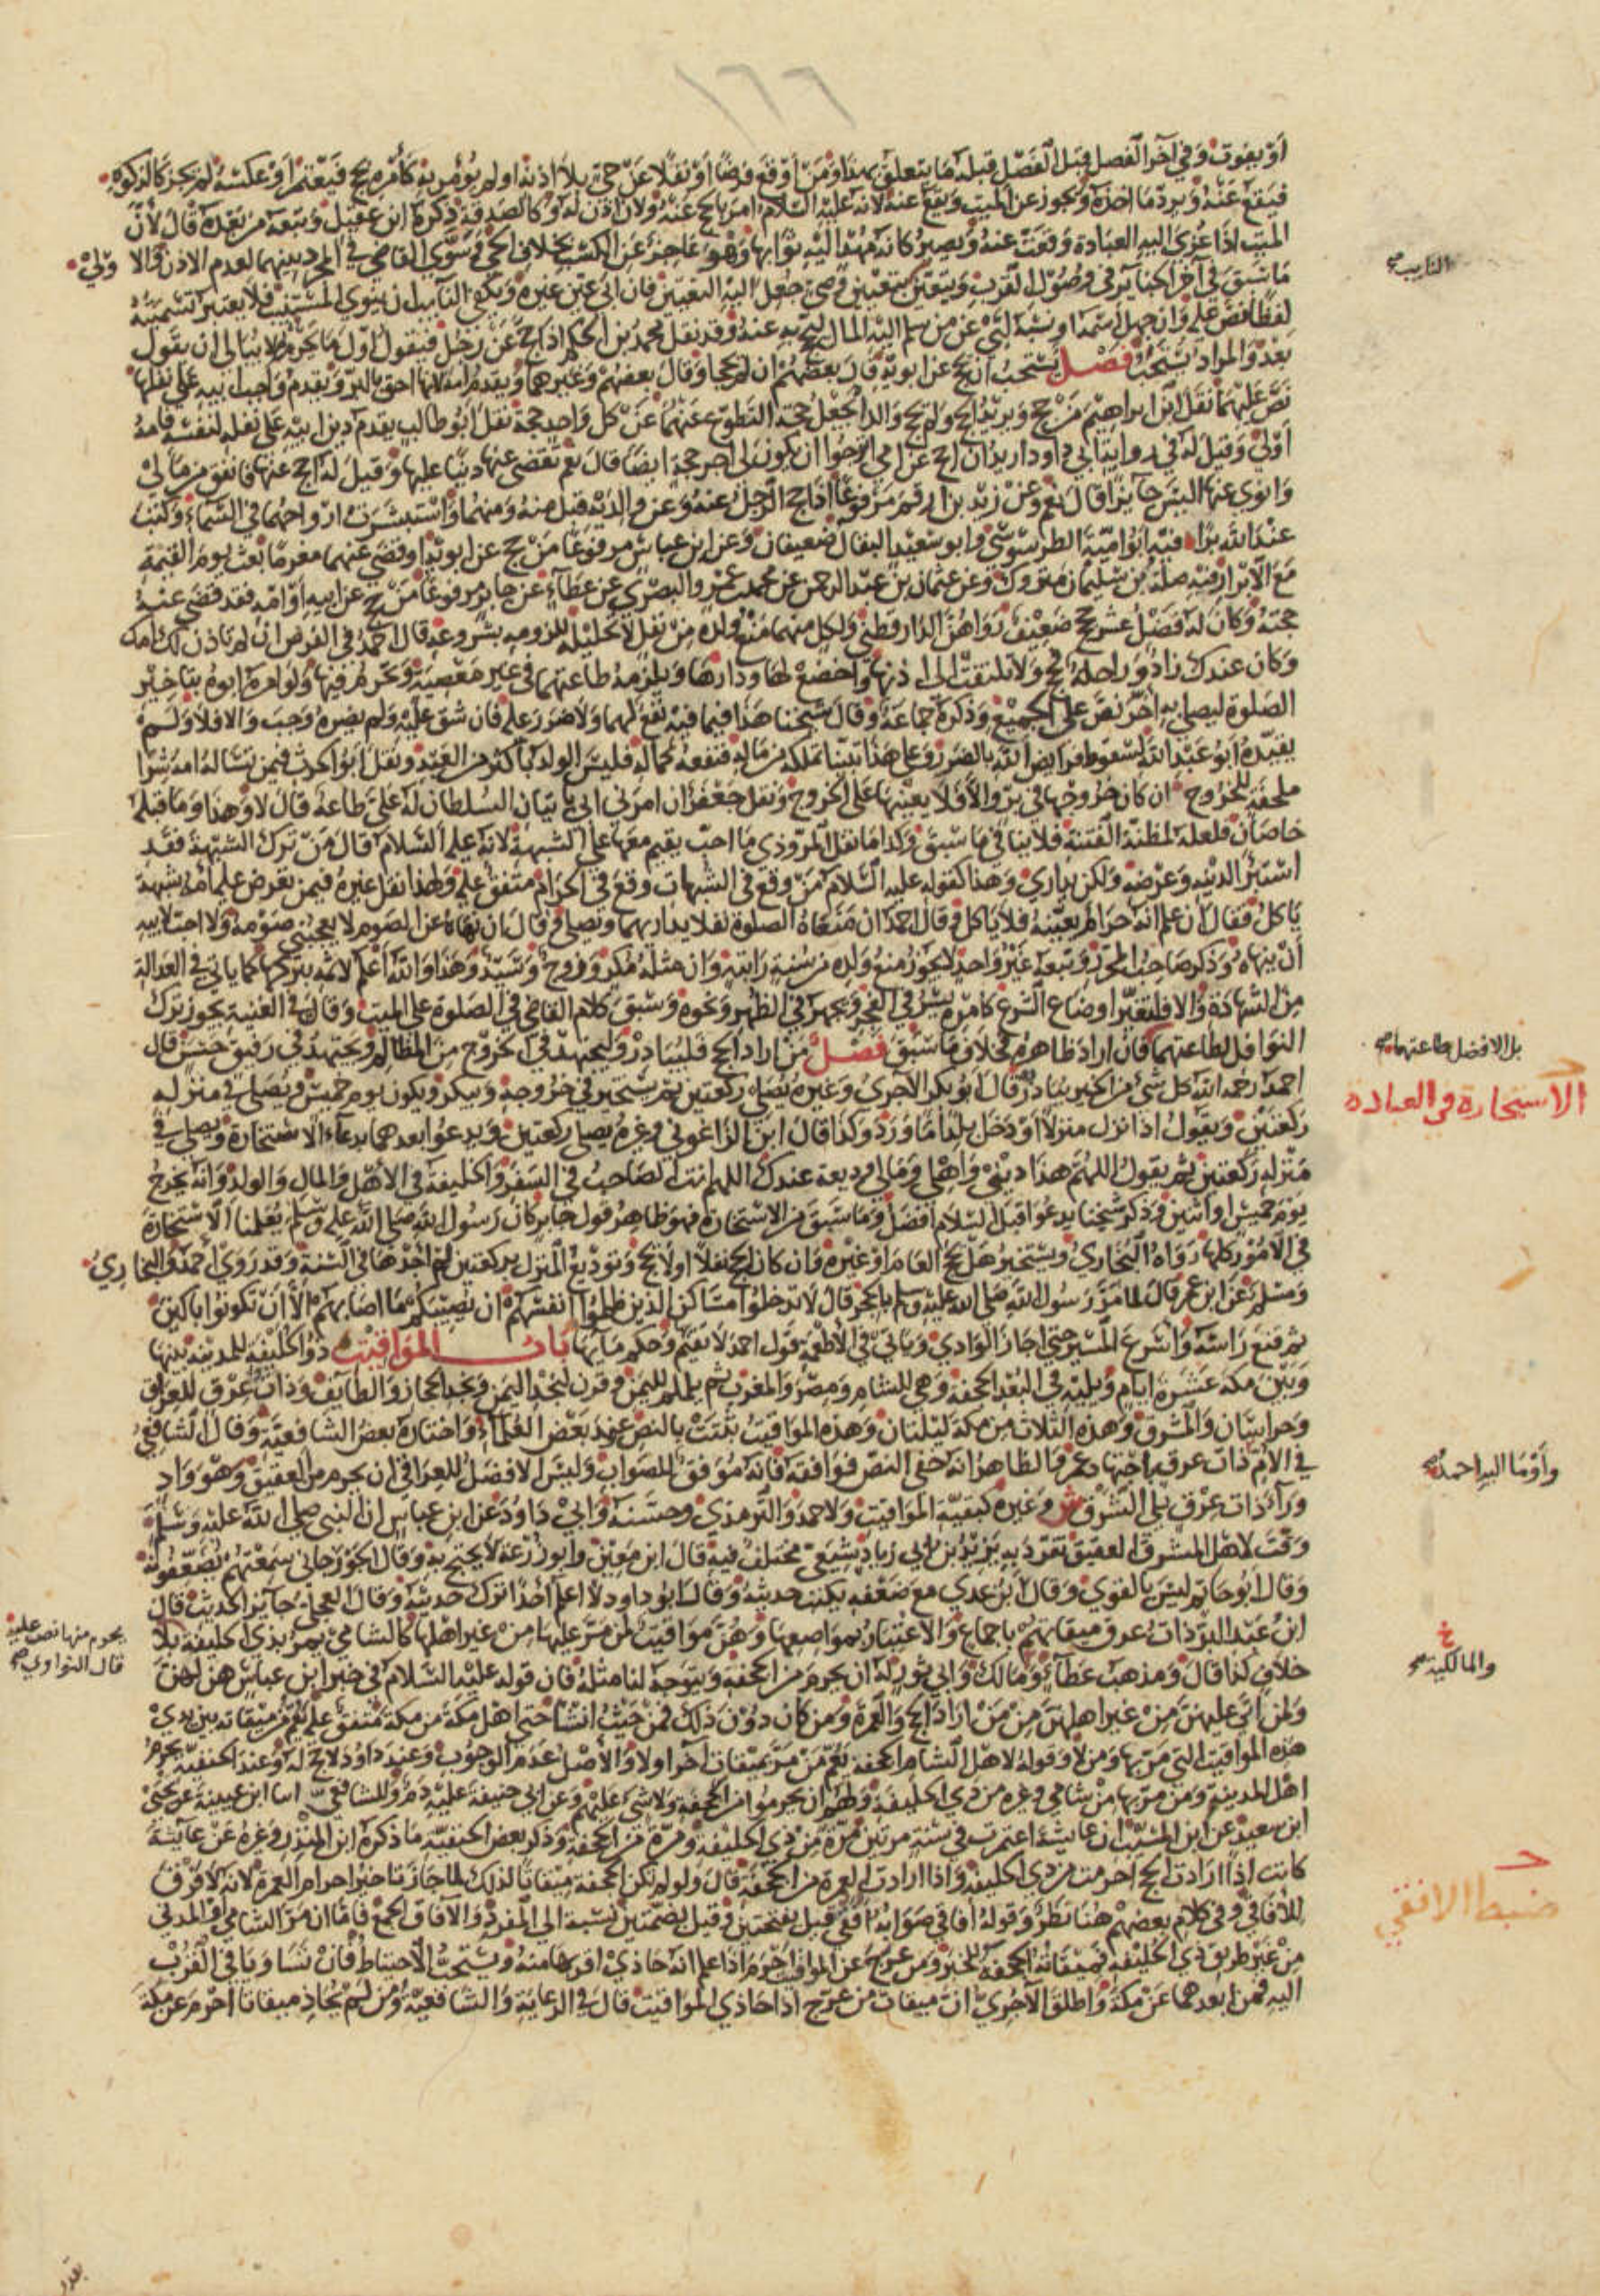 ١٦٦
أو يفوت وفي آخر الفصل قبل الفصل قبله ما يتعلق بهذا ومن أوقع فرضا أو نفلا عن حي بلا إذنه أو لم يؤمر به كأمره بحج فيعتمر أو عكسه لم يجز كالزكوة
فيقع عنه ويرد ما أخذه ويجوز عن الميت ويقع عنه لأنه عليه السلام أمر بالحج عنه ولا إذن له وكالصدقة ذكره ابن عقيل وتبعه من بعده قال لأن
الميت إذا عزي إليه العبادة وقعت عنه ويصير كأنه مهدا إليه ثوابها وهو عاجز عن الكسب بخلاف الحي وسوى القاضي في المجرد بينهما لعدم الإذن والأولى
ما سبق في آخر الجنايز في وصول القرب ويتعين بتعيين وصي جعل إليه التعيين فإن أبى عين غيره ويكفي النايب أن ينوي المستنيب فلا يعتبر تسميته
لفظا نص عليه وإن جهل اسمه أو نسبه لبى عن من سلم إليه المال ليحج به عنه وقد نقل محمد بن الحكم إذا حج عن رجل فيقول أول ما يحرم ولا يبالي أن يقول
بعد والمراد يستحب فصل يستحب أن يحج عن أبويه قال بعضهم إن لم يحجا وقال بعضهم وغيرهما ويقدم أمه لأنها أحق بالبر ويقدم واجب أبيه على نفلها
نص عليهما نقل ابن إبراهيم من حج ويريد الحج ولم يحج والداه يجعل حجة التطوع عنهما عن كل واحد حجة نقل أبو طالب يقدم دين أبيه على نفله لنفسه فأمه
أولى وقيل له في رواية أبي داود أريد أن أحج عن أمي أترجوا أن يكون لي أجر حجة أيضا قال نعم تقضي عنها دينا عليها وقيل له أحج عنها فأنفق من مالي
وأنوي عنها أليس جايزا قال نعم وعن زيد بن أرقم مرفوعا إذا حج الرجل عنه وعن والديه قبل منه ومنهما واستبشرت أرواحهما في السماء وكتب
عند الله برا فيه أبو أمية الطرسوسي وأبو سعيد البقال ضعيفان وعن ابن عباس مرفوعا من حج عن أبويه أو قضى عنهما مغرما بعث يوم القيمة
مع الأبرار فيه صلة بن سليمان متروك وعن عثمان بن عبد الرحمن عن محمد بن عمرو البصري عن عطاء عن جابر مرفوعا من حج عن أبيه أو أمه فقد قضى عنه
حجته وكان له فضل عشر حجج ضعيف رواهن الدارقطني ولكل منهما منع ولده من نفل لا تحليله للزومه بشروعه قال أحمد في الفرض إن لم تأذن لك أمك
وكان عندك زاد وراحلة فحج ولا تلتفت إلى إذنها واخضع لها ودارها ويلزمه طاعتهما في غير معصية وتحرم فيها ولو أمره أبوه بتأخير
الصلوة ليصلي به أخر نص على الجميع وذكره جماعة وقال شيخنا هذا فيما فيه نفع لهما ولا ضرر عليه فإن شق عليه ولم يضره وجب وإلا فلا ولم
يقيده أبو عبد الله لسقوط فرايض الله بالضرر وعلى هذا بنينا تملكه من ماله فنفعه كماله فليس الولد بأكثر من العبد ونقل أبو الحرث فيمن تسأله أمه شرا
ملحفة للخروج إن كان خروجها في بر وإلا فلا يعينها على الخروج ونقل جعفر إن أمرني أبي بإتيان السلطان له علي طاعة قال لا وهذا وما قبله
خاصان فلعله لمظنة الفتنة فلا ينافي ما سبق وكذا ما نقل المروذي ما أحب يقيم معهما على الشبهة لأنه عليه السلام قال من ترك الشبهة فقد
استبرأ لدينه وعرضه ولكن يداري وهذا كقوله عليه السلام من وقع في الشبهات وقع في الحرام متفق عليه ولهذا نقل غيره فيمن تعرض عليه أمه شبهة
يأكل فقال إن علم أنه حرام بعينه فلا يأكل وقال أحمد إن منعاه الصلوة نفلا يداريهما ويصلي وقال إن نهاه عن الصوم لا يعجبني صومه ولا أحب لأبيه
أن ينهاه وذكر صاحب المحرر وتبعه غير واحد لا يجوز منع ولده من سنة راتبة وإن مثله مكر وزوج وسيد وهذا والله أعلم لأثمه بتركها كما يأتي في العدالة
من الشهادة وإلا فلتغير أوضاع الشرع كأمره يسر في الفجر ويجهر في الظهر ونحوه وسبق كلام القاضي في الصلوة على الميت وقال في الغنية يجوز ترك
النوافل لطاعتهما فإن أراد ظاهره فخلاف ما سبق فصل من أراد الحج فليبادر وليجتهد في الخروج من المظالم ويجتهد في رفيق حسن قال
أحمد رحمه الله كل شيء من الخير يبادر قال أبو بكر الآجري وغيره يصلي ركعتين ثم يستخير في خروجه ويبكر ويكون يوم خميس ويصلي في منزله
ركعتين ويقول إذا نزل منزلا أو دخل بلدا ما ورد وكذا قال ابن الزاغوني وغيره يصلي ركعتين ويدعو بعدهما بدعاء الاستخارة ويصلي في
منزله ركعتين ثم يقول اللهم هذا ديني وأهلي ومالي وديعة عندك اللهم أنت الصاحب في السفر والخليفة في الأهل والمال والولد وأنه يخرج
يوم خميس أو اثنين وذكر شيخنا يدعو قبل السلام أفضل وما سبق من الاستخارة فهو ظاهر قول جابر كان رسول الله صلى الله عليه وسلم يعلمنا الاستخارة
في الأمور كلها رواه البخاري ويستخير هل يحج العام أو غيره وإن كان الحج نفلا أو لا يحج وتوديع المنزل بركعتين لم أجدها في السنة وقد روى أحمد والبخاري
ومسلم عن ابن عمر قال لما مر رسول الله صلى الله عليه وسلم بالحجر قال لا تدخلوا مساكن الذين ظلموا أنفسهم أن يصيبكم ما أصابهم إلا أن تكونوا باكين
ثم قنع رأسه وأسرع المسير حتى أجاز الوادي ويأتي في الأطعمة قول أحمد لا يقيم وحكم مايها باب المواقيت ذو الحليفة للمدينة بينها
وبين مكة عشرة أيام ويليه في البعد الجحفة وهي للشام ومصر والمغرب ثم يلملم لليمن وقرن لنجد اليمن ونجد الحجاز والطايف وذات عرق للعراق
وخراسان والمشرق وهذه الثلاث من مكة ليلتان وهذه المواقيت ثبتت بالنص عند بعض العلماء واختاره بعض الشافعية وقال الشافعي
في الأم ذات عرق باجتهاد عمر والظاهر أنه خفي النص فوافقه فإنه موفق للصواب وليس الأفضل للعراقي أن يحرم من العقيق وهو واد
وراء ذات عرق يلي الشرق ش وغيره كبقية المواقيت ولأحمد والترمذي وحسنه وأبي داود عن ابن عباس أن النبي صلى الله عليه وسلم
وقت لأهل المشرق العقيق تفرد به يزيد بن أبي زياد شيعي مختلف فيه قال ابن معين وأبو زرعة لا يحتج به وقال الجوزجاني سمعتهم يضعفونه
وقال أبو حاتم ليس بالقوي وقال ابن عدي مع ضعفه يكتب حديثه وقال أبو داود لا أعلم أحدا ترك حديثه وقال العجلي جايز الحديث قال
ابن عبد البر ذات عرق ميقاتهم بإجماع والاعتبار بمواضعها وهن مواقيت لمن مر عليها من غير أهلها كالشامي يمر بذي الحليفة بلا
خلاف كذا قال ومذهب عطاء ومالك وأبي ثور له أن يحرم من الجحفة ويتوجه لنا مثله فإن قوله عليه السلام في خبر ابن عباس هن لهن
ولمن أتى عليهن من غير أهلهن من من أراد الحج والعمرة ومن كان دون ذلك فمن حيث أنشأ حتى أهل مكة من مكة متفق عليه يعم من ميقاته بين يدي
هذه المواقيت التي مر بها ومن لا وقوله لأهل الشام الجحفة يعم من مر بميقات آخر أو لا والأصل عدم الوجوب وعند داود لا حج له وعند الحنفية يحرم
أهل المدينة ومن مر بها من شامي وغيره من ذي الحليفة ولهم أن يحرموا من الجحفة ولا شيء عليهم وعن أبي حنيفة عليه دم وللشافعي أنبا ابن عيينة عن يحيى
ابن سعيد عن ابن المسيب أن عايشة اعتمرت في سنة مرتين مرة من ذي الحليفة ومرة من الجحفة وذكر بعض الحنفية ما ذكره ابن المنذر وغيره عن عايشة
كانت إذا أرادت الحج أحرمت من ذي الحليفة وإذا أرادت العمرة من الجحفة قال ولو لم تكن الجحفة ميقاتا لذلك لما جاز تأخير إحرام العمرة لأنه لا فرق
للأفاقي وفي كلام بعضهم هنا نظر وقوله أفاقي صوابه أفقي قيل بفتحتين وقيل بضمتين نسبة إلى المفرد والآفاق الجمع فأما إن مر الشامي أو المدني
من غير طريق ذي الحليفة فميقاته الجحفة للخبر ومن عرج عن المواقيت أحرم إذا علم أنه حاذى أقربها منه ويستحب الاحتياط فإن تساويا في القرب
إليه فمن أبعدهما عن مكة وأطلق الآجري أن ميقات من عرج إذا حاذى المواقيت قال في الرعاية والشافعية ومن لم يحاذ ميقاتا أحرم عن مكة
النايب صح
بل الأفضل طاعتهما صح
الاستخارة في العبادة
وأومأ إليه أحمد صح
خ
والمالكية صح
يحرم منها نص عليه
قال النواوي صح
ضبط الأفقي
بقدر